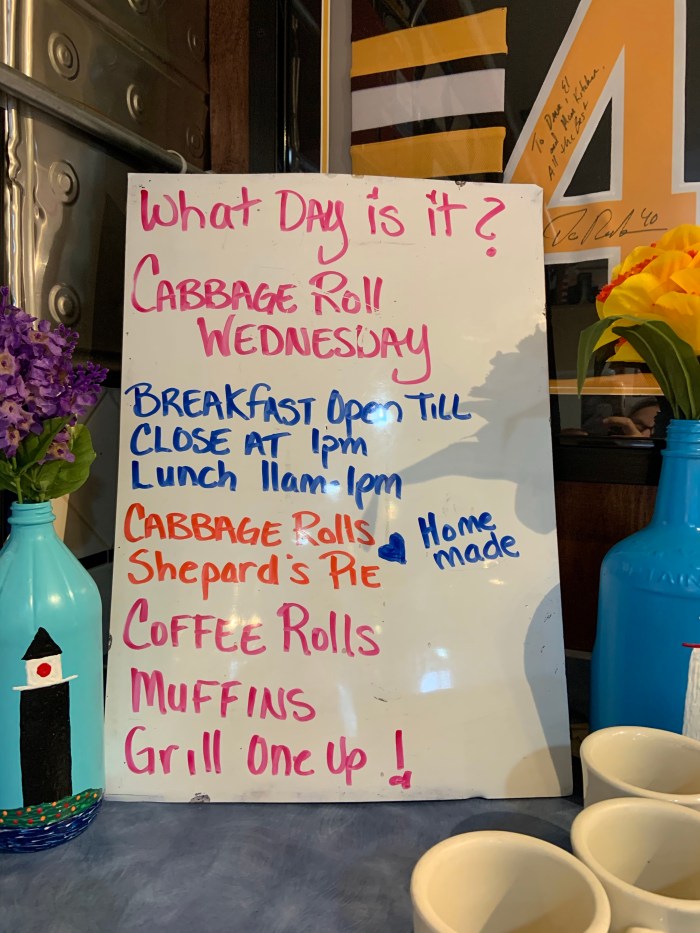 What Day is it?
Cabbage Roll
Wednesday
Breakfast Open Till
Close at 1pm
Lunch 11am-1pm
Cabbage Rolls
Shepard's Pie
Home
made
Coffee Rolls
Muffins
Grill One Up!
To Dave, El
and Mom Kitchen,
All the Best
40
4